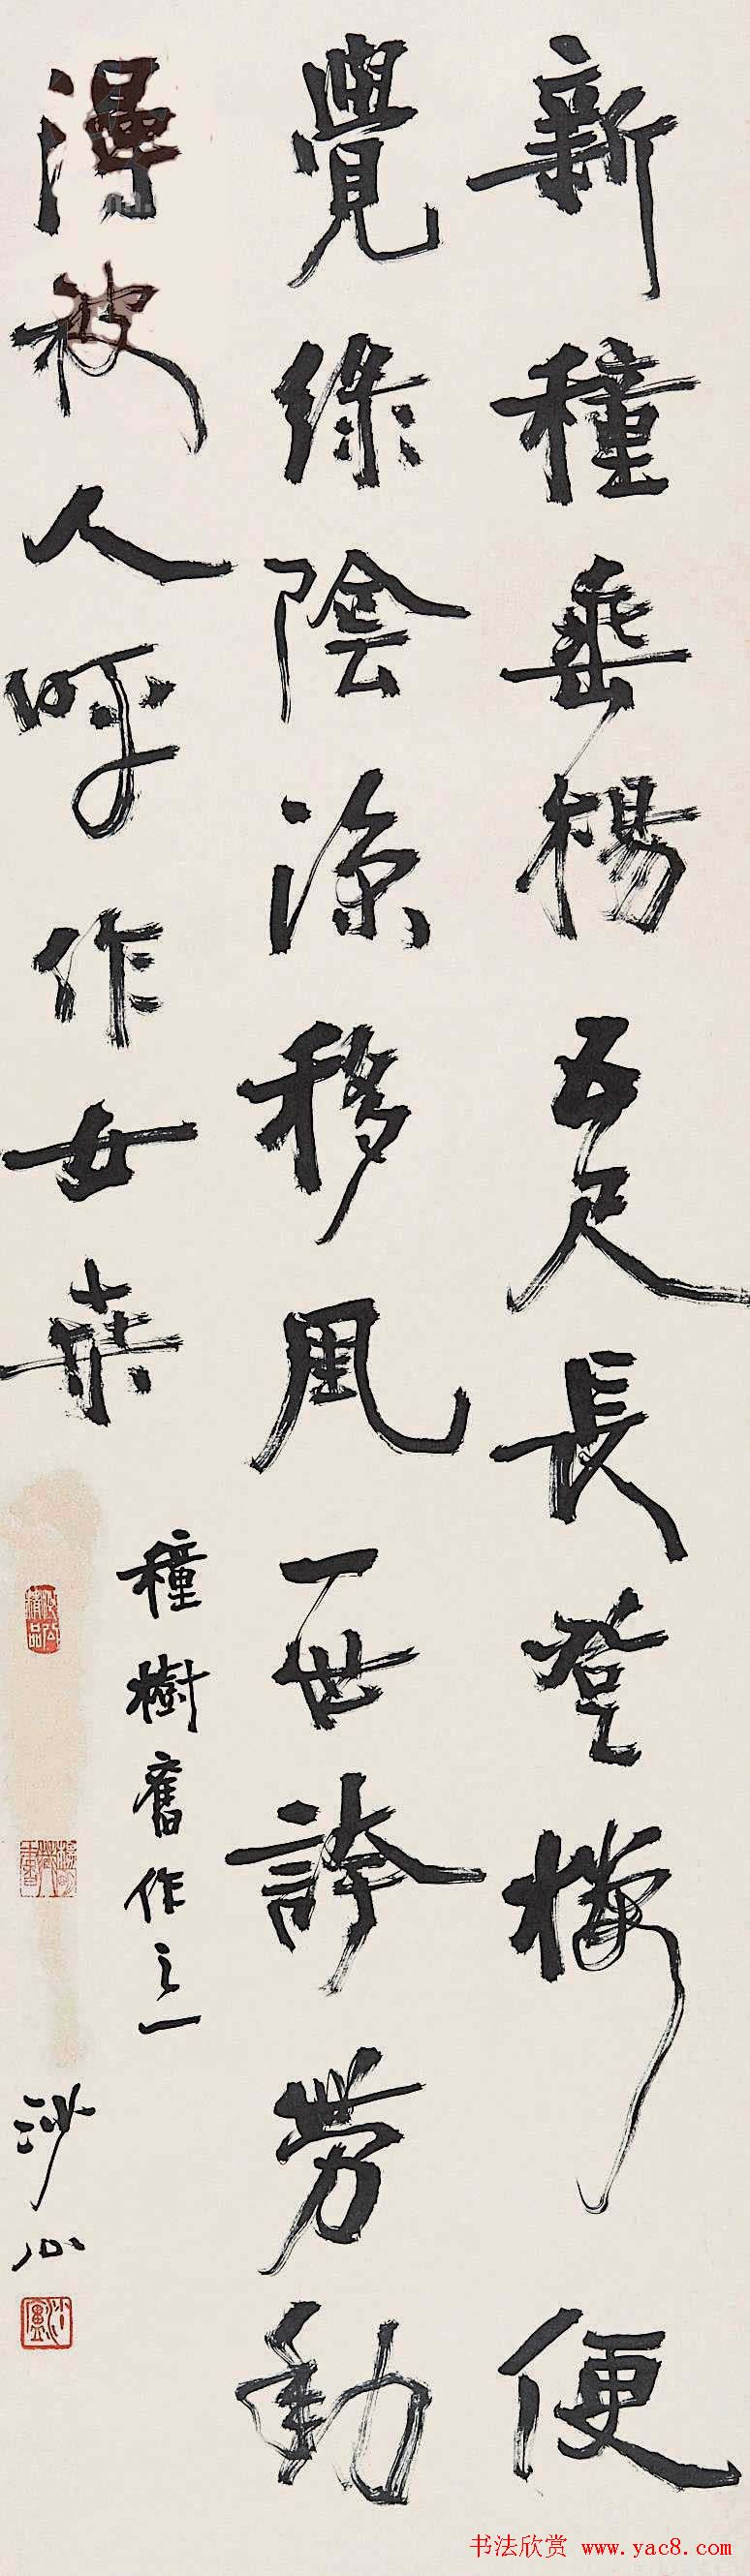 新種垂楊五尺長登樓便
覺綠陰涼移風一世誇勞動
渾被人呼作女桑
種樹舊作之一
沙
书法欣赏 www.yac8.com